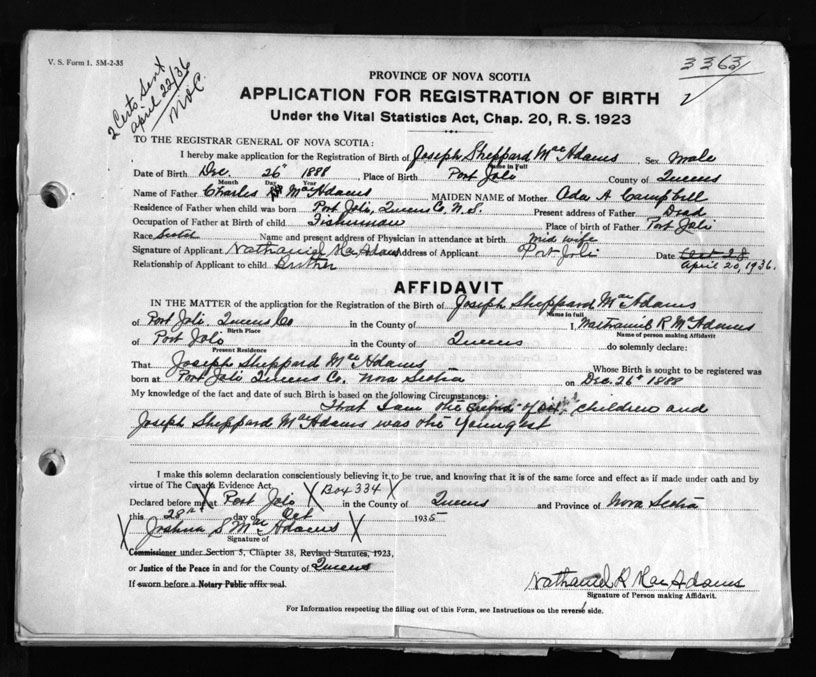 V. S. Form 1. 5M-2-35
2 Certs Sent
april 22/36
McC.
3363
PROVINCE OF NOVA SCOTIA
APPLICATION FOR REGISTRATION OF BIRTH
Under the Vital Statistics Act, Chap. 20, R. S. 1923
TO THE REGISTRAR GENERAL OF NOVA SCOTIA:
I hereby make application for the Registration of Birth of Joseph Sheppard MacAdams Sex Male
Name in Full
Date of Birth Dec. 26th 1888 Place of Birth Port Joli County of Queens
Month Day Year
Name of Father Charles MacAdams MAIDEN NAME of Mother Ada A Campbell
Residence of Father when child was born Port Joli, Queens Co. N.S. Present address of Father Dead
Occupation of Father at Birth of child Fisherman Place of birth of Father Port Joli
Race Scotch Name and present address of Physician in attendance at birth Mid wife
Signature of Applicant Nathaniel MacAdams Address of Applicant Port Joli Date Oct 28
Relationship of Applicant to child Brother April 20, 1936.
AFFIDAVIT
IN THE MATTER of the application for the Registration of the Birth of Joseph Sheppard MacAdams
Name in full
of Port Joli. Queens Co in the County of I, Nathaniel R McAdams
Birth Place Name of person making Affidavit
of Port Joli in the County of Queens do solemnly declare:
Present Residence
That Joseph Sheppard MacAdams Whose Birth is sought to be registered was
born at Port Joli Queens Co. Nova Scotia on Dec. 26th 1888
My knowledge of the fact and date of such Birth is based on the following Circumstances:
That I am the of children and
Joseph Sheppard MacAdams was the Youngest
I make this solemn declaration conscientiously believing it to be true, and knowing that it is of the same force and effect as if made under oath and by
virtue of The Canada Evidence Act.
Declared before me at X Port Joli X Box 334 X in the County of Queens and Province of Nova Scotia
this 28th day of Oct 1935
X Joshua S MacAdams X
Signature of
Commissioner under Section 5, Chapter 38, Revised Statutes, 1923,
or Justice of the Peace in and for the County of Queens
If sworn before a Notary Public affix seal.
Nathaniel R MacAdams
Signature of Person making Affidavit.
For Information respecting the filling out of this Form, see Instructions on the reverse side.